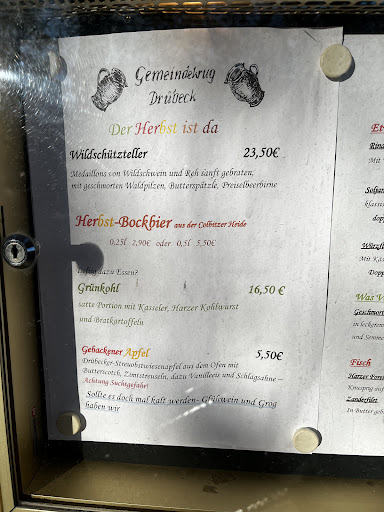 Gemeindekrug
Drübeck
Der Herbst ist da
Wildschützteller 23,50€
Medaillons von Wildschwein und Reh sanft gebraten,
mit geschmorten Waldpilzen, Butterspätzle, Preiselbeerbirne
Herbst-Bockbier aus der Colbitzer Heide
0,25l 2,90€ oder 0,5l 5,50€
dazu Essen?
Grünkohl 16,50 €
satte Portion mit Kasseler, Harzer Kohlwurst
und Bratkartoffeln
Gebackener Apfel 5,50€
Drübecker-Streuobstwiesenapfel aus dem Ofen mit
Butterscotch, Zimtstreuseln, dazu Vanilleeis und Schlagsahne –
Achtung Suchtgefahr!
Sollte es doch mal kalt werden- Glühwein und Grog
haben wir
Et
Rina
Soljan
klassis
dopp
Würzfl
Mit Käs
Dopp
Was V
Geschmort
in leckerem
und Semme
Fisch
Harzer Fore
Knusprig auf
Zanderfilet
In Butter geb